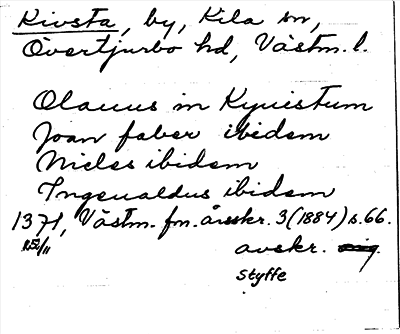 Kivsta, by, Kila sn,
Övertjurbo hd, Västm. l.
Olauus in Kyuistum
Joan faber ibidem
Nicles ibidem
Ingeualdus ibidem
1371, Västm. fm. årsskr. 3 (1884) s. 66.
avskr.
Styffe